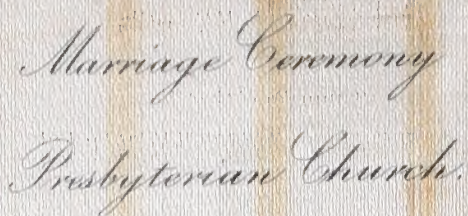 Marriage Ceremony
Presbyterian Church.